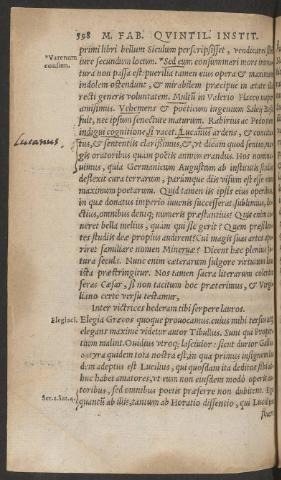 598 M. FAB. QVINTIL. INSTIT.
primi libri bellum Siculum perscripsisset, vendicaret
iure secundum locum. *Sed eum consummari mors
*Vt enim
consum.
tura non passa est: puerilia tamen eius opera & maximam
indolem ostendunt, & mirabilem præcipue in ætate
recti generis voluntatem. Multū in Valerio Flacco nuper
amisimus. Vehemens & poëticum ingenium Saleij
fuit, nec ipsum senectute maturum. Rabirius ac Pedo
indigni cognitione, si vacet. Lucanus ardens, & concita-
Lucanus
tus, & sententiis clarissimus, &, vt dicam quod sentio,
gis oratoribus quam poëtis annumerandus. Hos nomi-
uimus, quia Germanicum Augustum ab institutis studiis
deflexit cura terrarum, parumque diis visum est esse eum
maximum poëtarum. Quid tamen iis ipsis eius operibus
in quæ donatus imperio iuuenis secesserat, sublimius,
ctius, omnibus denique numeris præstantius? Quis enim
neret bella melius, quàm qui sic gerit? Quem præsiden-
tes studiis deæ propius audirent? Cui magis suas artes
riret familiare nomen Minerua? Dicent hæc plenius
tura secula. Nunc enim cæterarum fulgore virtutum
ista præstringitur. Nos tamen sacra literarum colentes
feras Cæsar, si non tacitum hoc præterimus, & Virgi-
liano certe versu testamur,
Inter victrices hederam tibi serpere lauros.
Elegiaci.
Elegia Græcos quoque prouocamus, cuius mihi tersus atque
elegans maxime videtur autor Tibullus. Sunt qui Proper-
tium malint. Ouidius vtroque lasciuior: sicut durior Gallus.
Satyra quidem tota nostra est, in qua primus insignem
dem adeptus est Lucilius, qui quosdam ita deditos sibi
huc habet amatores, vt eum non eiusdem modò operis
toribus, sed omnibus poëtis præferre non dubitent.
Ser. 1. Sat. 4.
quantū ab illis, tantum ab Horatio dissentio, qui